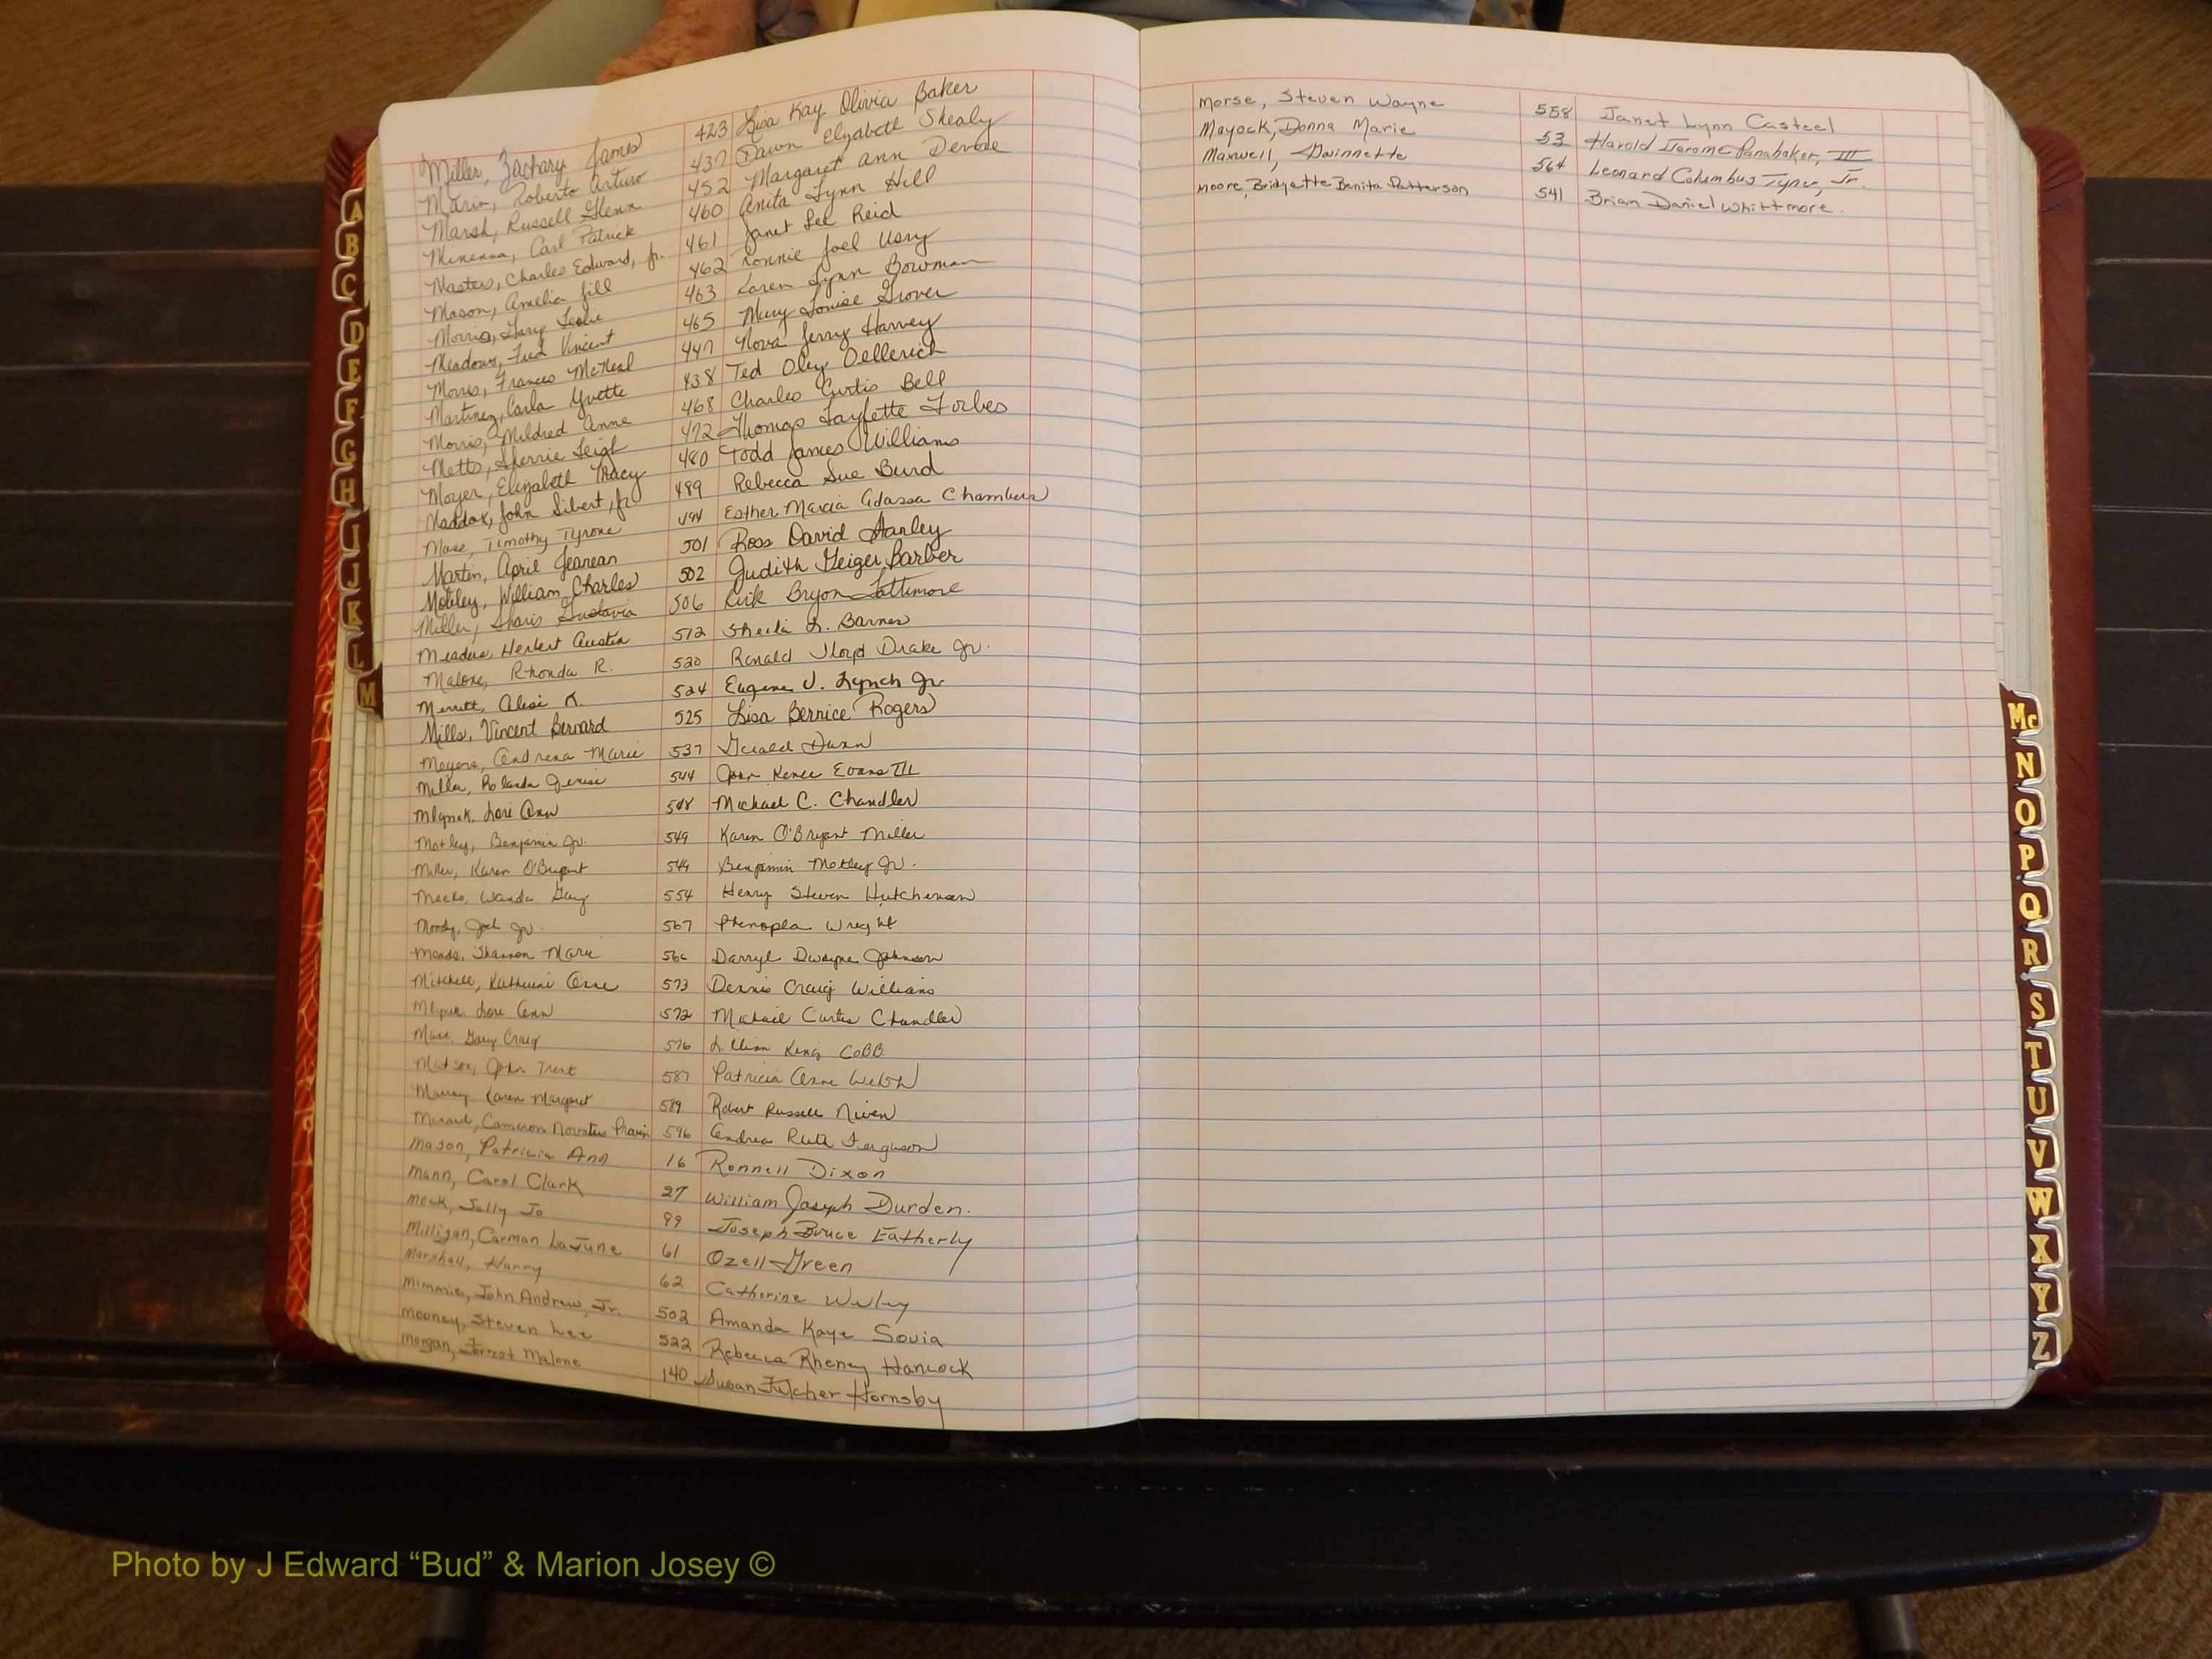 Miller, Zachary James 423 Lisa Kay Olivia Baker
Marin, Roberto Arturo 437 Dawn Elizabeth Shealy
Marsh, Russell Glenn 452 Margaret Ann Devore
Carl Patrick 460 Anita Lynn Hill
Masters, Charles Edward, Jr. 461 Janet Lee Reid
Mason, Amelia Jill 462 Ronnie Joel Usry
Morris, Gary Leslie 463 Karen Lynn Bowman
Meadows, Fred Vincent 465 Mary Louise Grover
Morris, Frances McNeal 447 Nova Jerry Harvey
Martinez, Carla Yvette 438 Ted Oley Oellerich
Morris, Mildred Anne 468 Charles Curtis Bell
Metts, Sherrie Leigh 472 Thomas Layfette Forbes
Moyer, Elizabeth Tracy 480 Todd James Williams
Maddox, John Sibert, Jr. 489 Rebecca Sue Burd
Mase, Timothy Tyrone 494 Esther Marcia Adassa Chambers
Martin, April Jeanean 501 Ross David Stanley
Mobley, William Charles 502 Judith Geiger Barber
Miller, Sharis Gustavia 506 Kirk Bryon Lattimore
Meadus, Herbert Austin 512 Sheila L. Barnes
Malone, Rhonda R. 520 Ronald Lloyd Drake Jr.
Merritt, Alesi K. 524 Eugene V. Lynch Jr.
Mills, Vincent Bernard 525 Lisa Bernice Rogers
Meyers, Andrena Marie 537 Gerald Dunn
Miller, Rolanda Denise 544 John Renee Evans III
Mlynek, Lori Ann 548 Michael C. Chandler
Motley, Benjamin Jr. 549 Karen O'Bryant Miller
Miller, Karen O'Bryant 549 Benjamin Motley Jr.
Meeks, Wanda Gay 554 Henry Steven Hutcheson
Moody, Jack Jr. 567 Phenopla Wright
Meade, Shannon Marie 566 Darryl Dwayne Johnson
Mitchell, Katherine Anne 573 Dennis Craig Williams
Lori Ann 572 Michael Curtis Chandler
Mase, Gary Craig 576 Lillian King Cobb
Matson, John Trent 587 Patricia Anne Welsh
Karen Margaret 589 Robert Russell Niven
Menard, Cameron Novatus 596 Andrea Ruth Ferguson
Mason, Patricia Ann 16 Ronnell Dixon
Mann, Carol Clark 27 William Joseph Durden.
Mock, Sally Jo 99 Joseph Bruce Eatherly
Milligan, Carman LaJune 61 Ozell Green
Marshall, Harry 62 Catherine
Mimmie, John Andrew, Jr. 502 Amanda Kaye Sovia
Mooney, Steven Lee 522 Rebecca Rheney Hancock
Morgan, Forrest Malone 140 Susan Fulcher Hornsby
Morse, Steven Wayne 558 Janet Lynn Casteel
Mayock, Donna Marie 53 Harold Jerome Panabaker, III
Maxwell, Gwinnette 564 Leonard Columbus Tynes, Jr.
Moore, Bridgette Benita Patterson 541 Brian Daniel Whittmore.
A
B
C
D
E
F
G
H
I
J
K
L
M
Mc
N
O
P
Q
R
S
T
U
V
W
X
Y
Z
Photo by J Edward “Bud” & Marion Josey ©